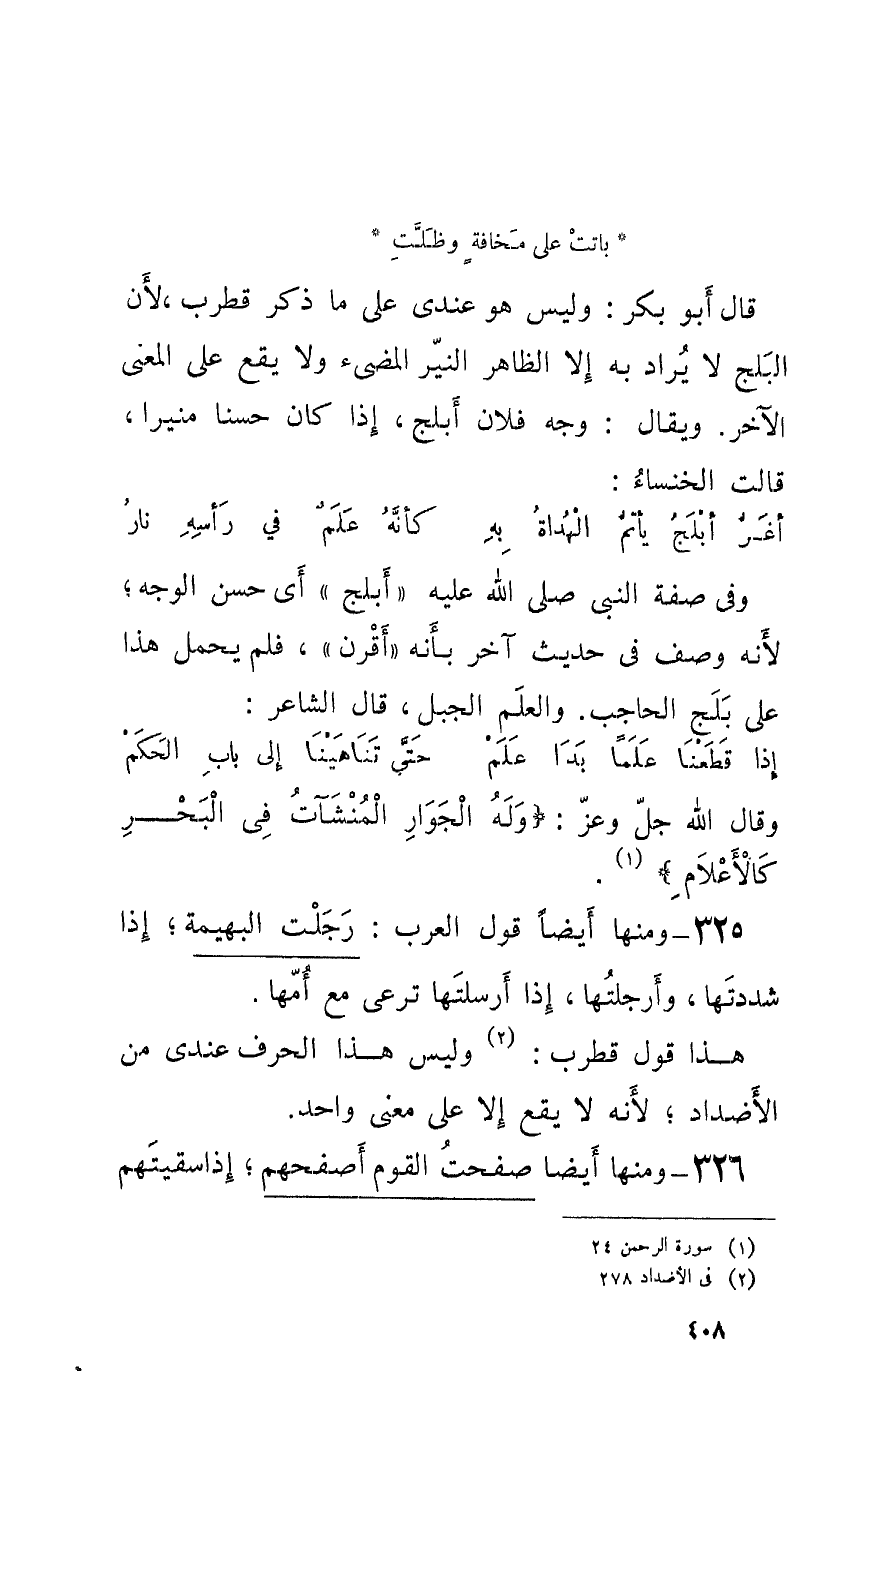 * باتتْ على مَخافةٍ وظَلَّتِ *
قال أَبو بكر : وليس هو عندى على ما ذكر قطرب ،لأَن
البَلج لا يُراد به إلا الظاهر النيّر المضىء ولا يقع على المعنى
الآخر. ويقال : وجه فلان أَبلج ، إذا كان حسنا منيرا ،
قالت الخنساءُ :
أغَرُّ أبْلَجُ يأتمُّ الْهُداةُ بِهِ كأنَّهُ عَلَمٌ في رَأسِهِ نارُ
وفى صفة النبى صلى الله عليه «أَبلج » أَى حسن الوجه ؛
لأَنه وصف فى حديث آخر بأَنه «أَقْرن» ، فلم يحمل هذا
على بَلَج الحاجب. والعلَم الجبل ، قال الشاعر :
إذا قَطَعْنَا عَلَمًا بَدَا عَلَمْ حَتَّى تَنَاهَيْنَا إلى بابِ الحَكَمْ
وقال الله جلّ وعزّ : ﴿وَلَهُ الْجَوَارِ الْمُنْشَآتُ فِى الْبَحْرِ
كَالْأَعْلَامِ﴾ (١) .
٣٢٥ــومنها أَيضاً قول العرب : رَجَلْت البهيمة ؛ إذا
شددتَها ، وأَرجلتُها ، إذا أَرسلتَها ترعى مع أُمّها .
هذا قول قطرب : (٢) وليس هذا الحرف عندى من
الأَضداد ؛ لأَنه لا يقع إلا على معنى واحد.
٣٢٦ــومنها أَيضا صفحتُ القوم أَصفحهم ؛ إذاسقيتَهم
(١) سورة الرحمن ٢٤
(٢) فى الأضداد ٢٧٨
٤٠٨